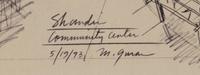 Shandin
Community Center
5/19/93 M. Guran